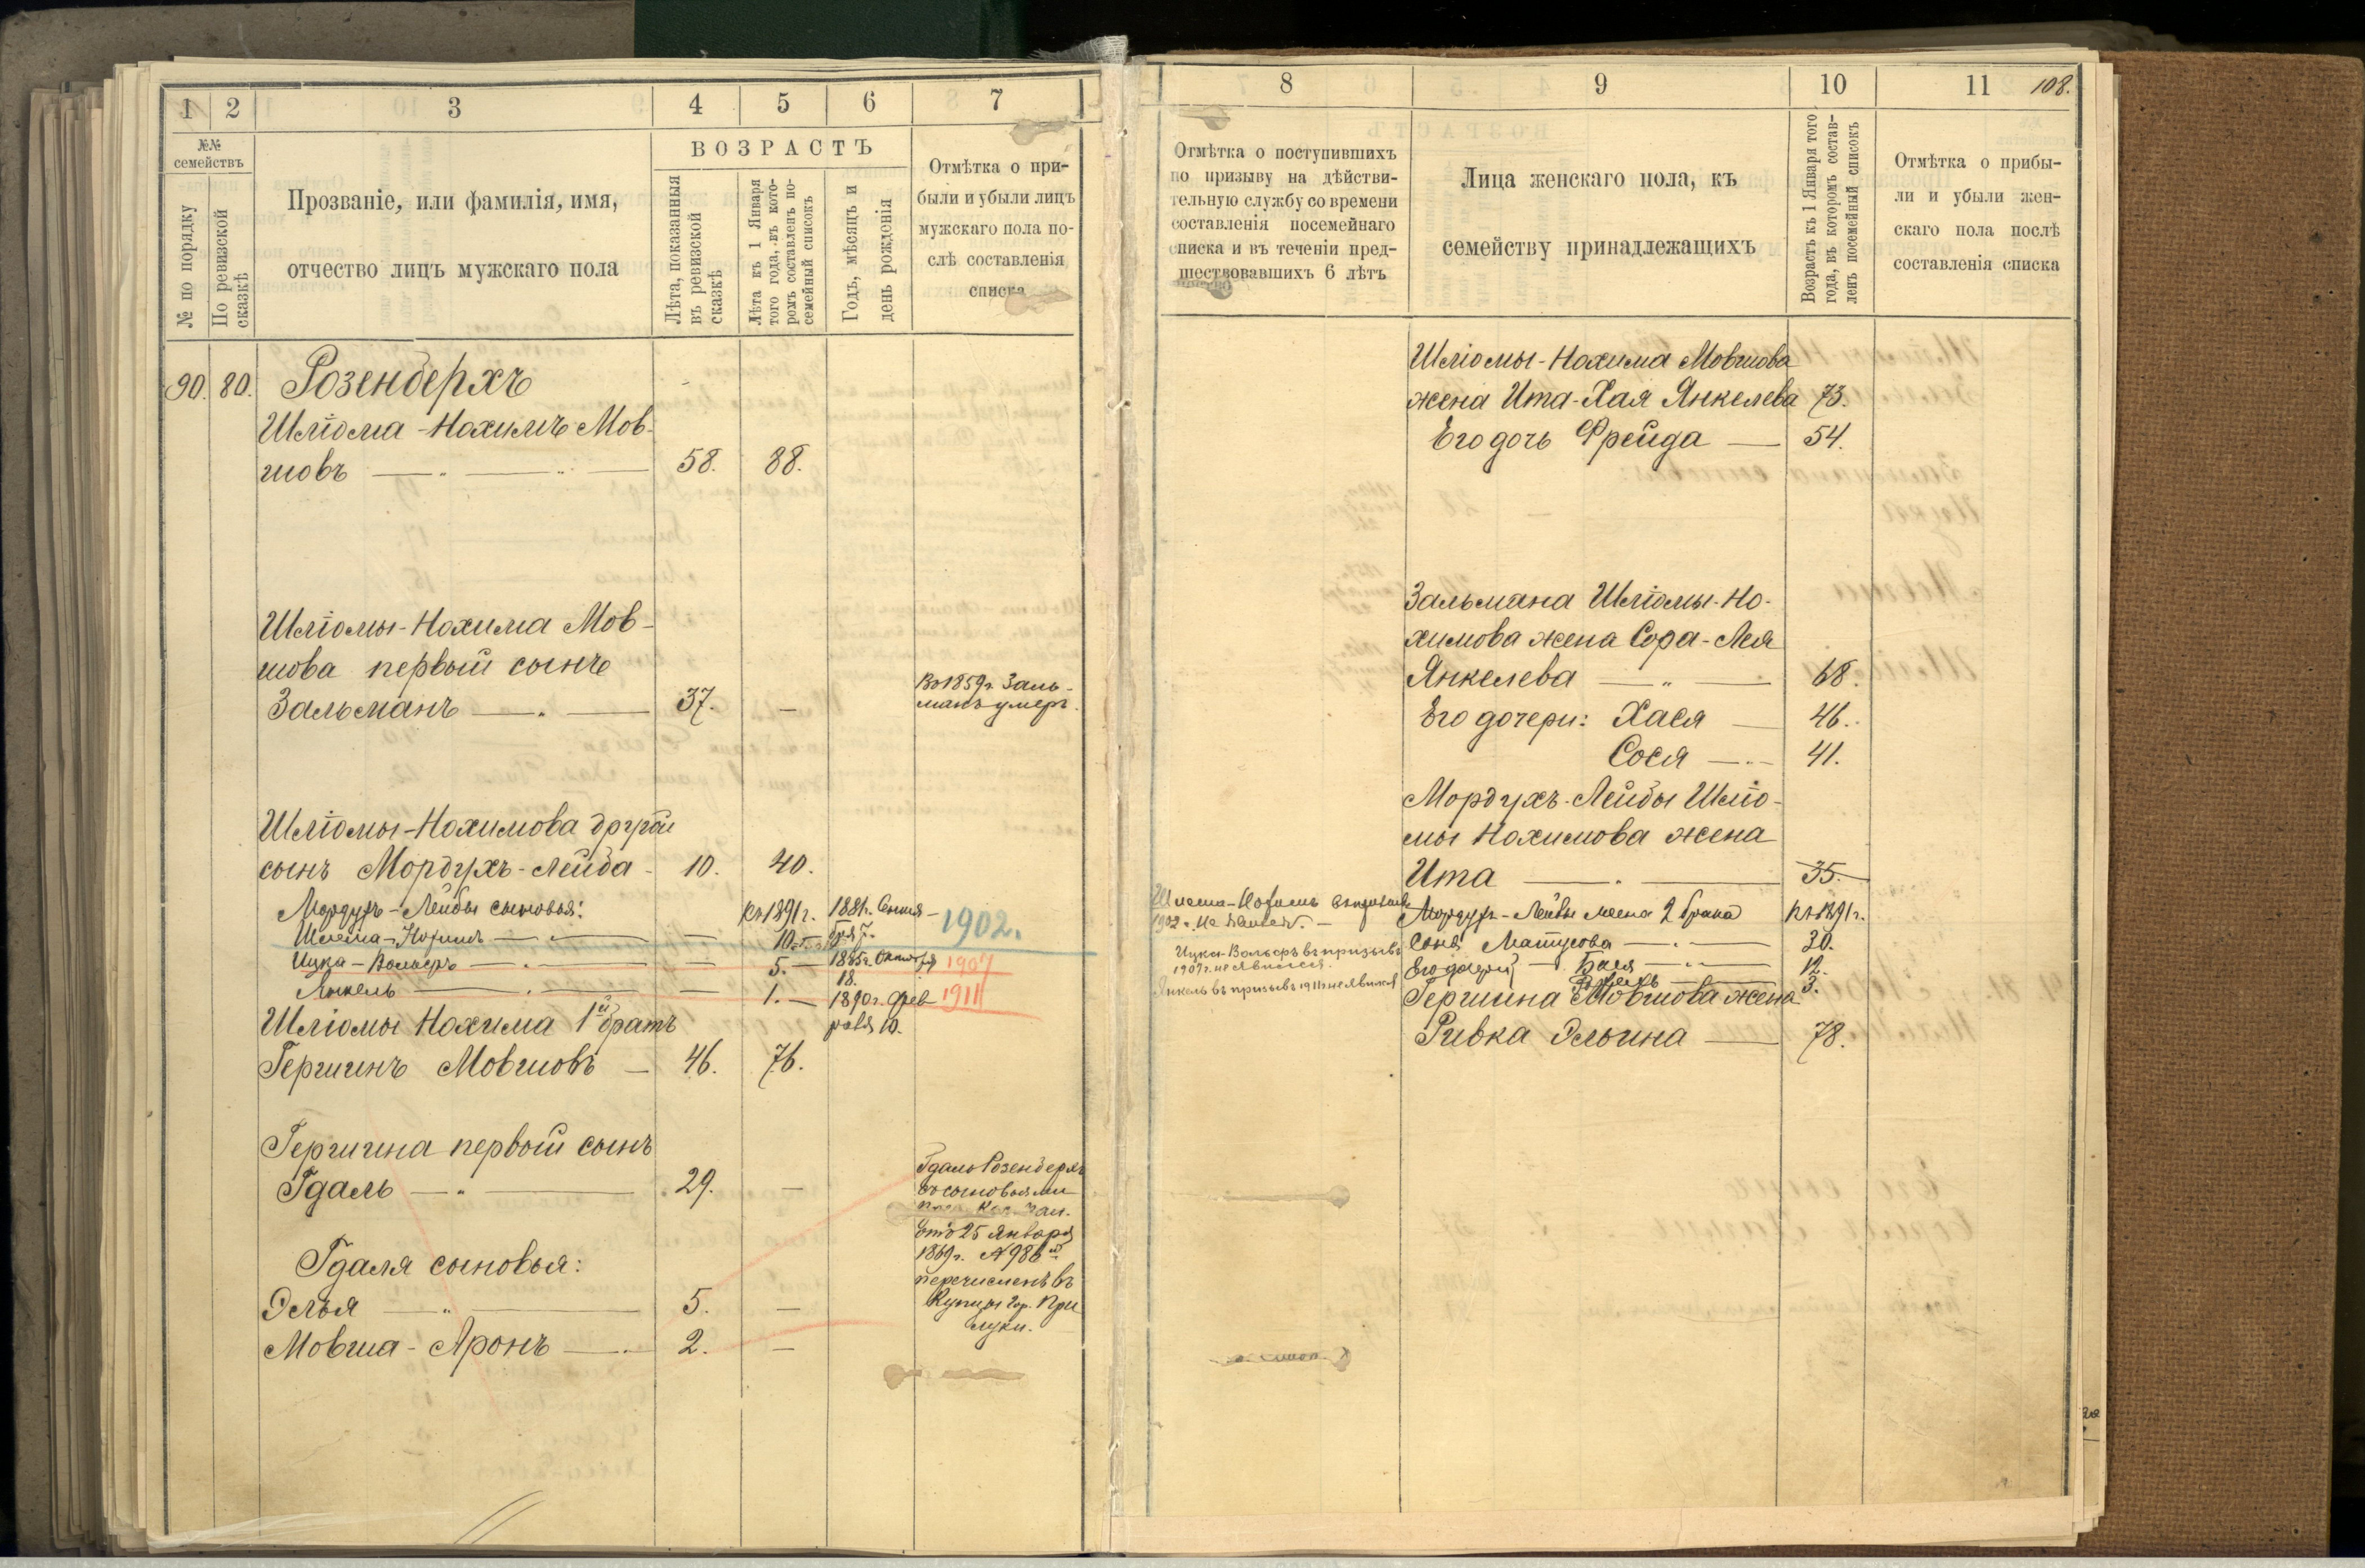 1 2 3 4 5 6 7
№№ семействъ
№ по порядку
По ревизской сказкѣ
Прозваніе, или фамилія, имя,
отчество лицъ мужскаго пола
ВОЗРАСТЪ
Лѣта, показанныя
въ ревизской
сказкѣ
Лѣта къ 1 Января
того года, въ кото-
ромъ составленъ по-
семейный списокъ
Годъ, мѣсяцъ и
день рожденія
Отмѣтка о при-
были и убыли лицъ
мужскаго пола по-
слѣ составленія
списка
90. 80. Розенберхъ
Шліома-Нохимъ Мов-
шовъ 58. 88.
Шліомы-Нохима Мов-
шова первый сынъ
Зальманъ 37. —
Въ 1859 г. Заль-
манъ умеръ.
Шліомы-Нохимова другой
сынъ Мордухъ-Лейба 10. 40.
Мордухъ-Лейбы сыновья: къ 1891 г. 1881 г. Сентя-
Шлема-Нохимъ — 10 — бря 7. 1902.
Ицка-Вольфъ — 5. — 1885 г. Октября 18. 1907
Янкель — 1. — 1890 г. Фев-
раля 10. 1911
Шліомы Нохима 1й братъ
Гершинъ Мовшовъ — 46. 76.
Гершина первый сынъ
Гдаль 29. —
Гдаля сыновья:
Элья 5. —
Мовша-Аронъ 2. —
Гдаль Розенберхъ
съ сыновьями
отъ 25 Января
1869 г. № 986й
перечисленъ въ
Купцы гор. При
луки.
8 9 10 11 108.
Отмѣтка о поступившихъ
по призыву на дѣйстви-
тельную службу со времени
составленія посемейнаго
списка и въ теченіи пред-
шествовавшихъ 6 лѣтъ
Лица женскаго пола, къ
семейству принадлежащихъ
Возрастъ къ 1 Января того
года, въ которомъ состав-
ленъ посемейный списокъ
Отмѣтка о прибы-
ли и убыли жен-
скаго пола послѣ
составленія списка
Шліомы-Нохима Мовшова
жена Ита-Хая Янкелева 73.
Его дочь Фрейда — 54.
Зальмана Шліомы-Но-
химова жена Сора-Лея
Янкелева 68.
Его дочери: Хася — 46.
Сося 41.
Мордухъ-Лейбы Шліо-
мы Нохимова жена
Ита 35.
Шлема-Нохимъ въ призывѣ
1902 г. не явился. —
Мордухъ-Лейбы жена 2 брака къ 1891 г.
Ицка-Вольфъ въ призывъ
1907 г. не явился.
Соня Матусова 30.
Его дочери Бася 12.
3.
Янкель въ призывъ 1911 г. не явился
Гершина Мовшова жена
Ривка Эльина — 78.